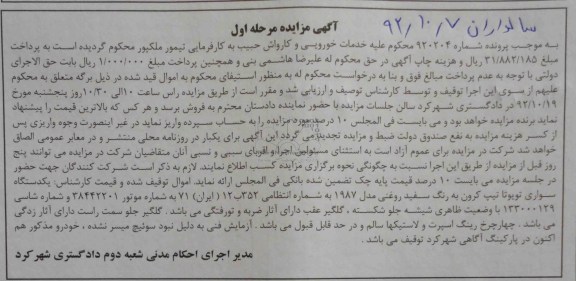 سالداران ۹۲/۱۰/۷
آگهی مزایده مرحله اول
به موجب پرونده شماره ۹۲۰۲۰۴ محکوم علیه خدمات خورویی و کارواش حبیب به کارفرمایی تیمور ملکپور محکوم گردیده است به پرداخت
مبلغ ۳۱/۸۸۲/۱۸۵ ریال و هزینه چاپ آگهی در حق محکوم له علیرضا هاشمی بنی و همچنین پرداخت مبلغ ۱/۰۰۰/۰۰۰ ریال بابت حق الاجرای
دولتی با توجه به عدم پرداخت مبالغ فوق و بنا به درخواست محکوم له به منظور استیفای محکوم به اموال قید شده در ذیل برگه متعلق به محکوم
علیهم از سوی این اجرا توقیف و توسط کارشناس توصیف و ارزیابی شد و مقرر است از طریق مزایده راس ساعت ۱۰الی ۱۰/۳۰روز پنجشنبه مورخ
۹۲/۱۰/۱۹ در دادگستری شهرکرد سالن جلسات مزایده با حضور نماینده دادستان محترم به فروش برسد و هر کس که بالاترین قیمت را پیشنهاد
نماید برنده مزایده خواهد بود و می بایست فی المجلس ۱۰ درصد مورد مزایده را به حساب سپرده واریز نماید در غیر اینصورت وجوه واریزی پس
از کسر هزینه مزایده به نفع صندوق دولت ضبط و مزایده تجدید می گردد این آگهی برای یکبار در روزنامه محلی منتشر و در معابر عمومی الصاق
خواهد شد شرکت در مزایده برای عموم آزاد است به استثنای مسئولین اجرا و اقربای سببی و نسبی آنان متقاضیان شرکت در مزایده می توانند پنج
روز قبل از مزایده از طریق این اجرا نسبت به چگونگی نحوه برگزاری مزایده کسب اطلاع نمایند. لازم به ذکر است شرکت کنندگان جهت حضور
در جلسه مزایده می بایست ۱۰ درصد قیمت پایه چک تضمین شده بانکی فی المجلس ارائه نماید. اموال توقیف شده و قیمت کارشناس: یکدستگاه
سواری تویوتا تیپ کرون به رنگ سفید روغنی مدل ۱۹۸۷ به شماره انتظامی ۳۵۲ب۱۲ ( ایران) ۷۱ به شماره موتور ۳۸۴۴۲۲۰۱ و شماره شاسی
۱۳۳۰۰۰۱۲۹ با وضعیت ظاهری شیشه جلو شکسته ، گلگیر عقب دارای آثار ضربه و تورفتگی می باشد . گلگیر جلو سمت راست دارای آثار زدگی
می باشد . چهارچرخ رینگ اسپرت و لاستیکها سالم و در حد قابل قبول می باشد . آزمایش فنی به دلیل نبود سوئیچ میسر نشده ، خودرو مذکور هم
اکنون در پارکینگ آگاهی شهرکرد توقیف می باشد .
مدیر اجرای احکام مدنی شعبه دوم دادگستری شهرکرد